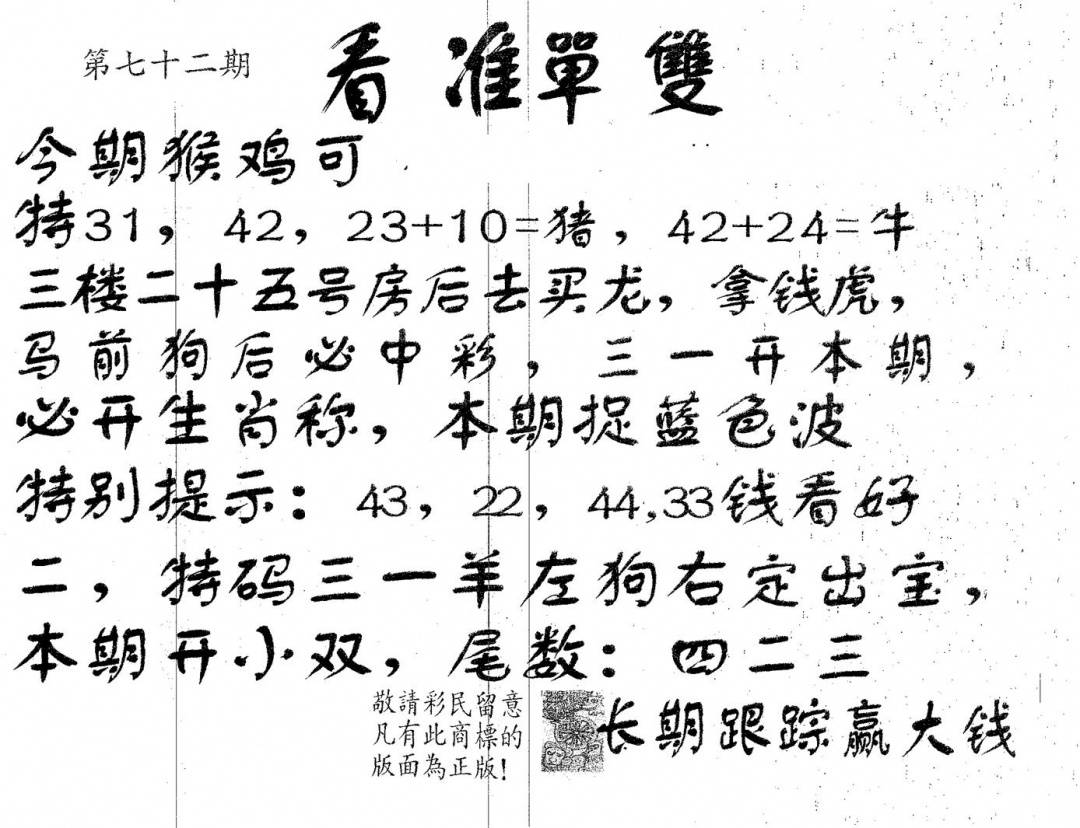 第七十二期
看准單雙
今期猴鸡可
特31，42，23+10=猪，42+24=牛
三楼二十五号房后去买龙，拿钱虎，
马前狗后必中彩，三一开本期，
必开生肖称，本期捉蓝色波
特别提示：43，22，44,33钱看好
二，特码三一羊左狗右定出宝，
本期开小双，尾数：四二三
敬請彩民留意
凡有此商標的
版面為正版！
长期跟踪赢大钱